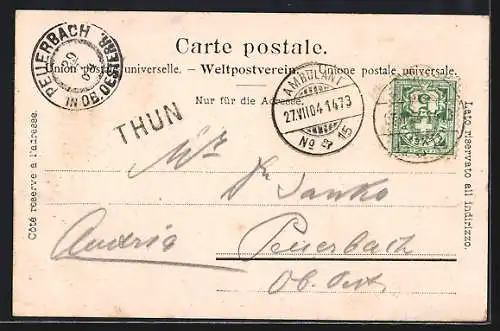 PEUERBACH
IN OB.OESTERR.
29
Carte postale.
Union postale universelle. – Weltpostverein. – Unione postale universale.
Nur für die Adresse.
AMBULANT
27.VII 04 14 73
No 2 15
THUN
Côté réservé à l'adresse.
Lato riservato all indirizzo.
Dr Janko
Austria Peuerbach
Ob. Öst.